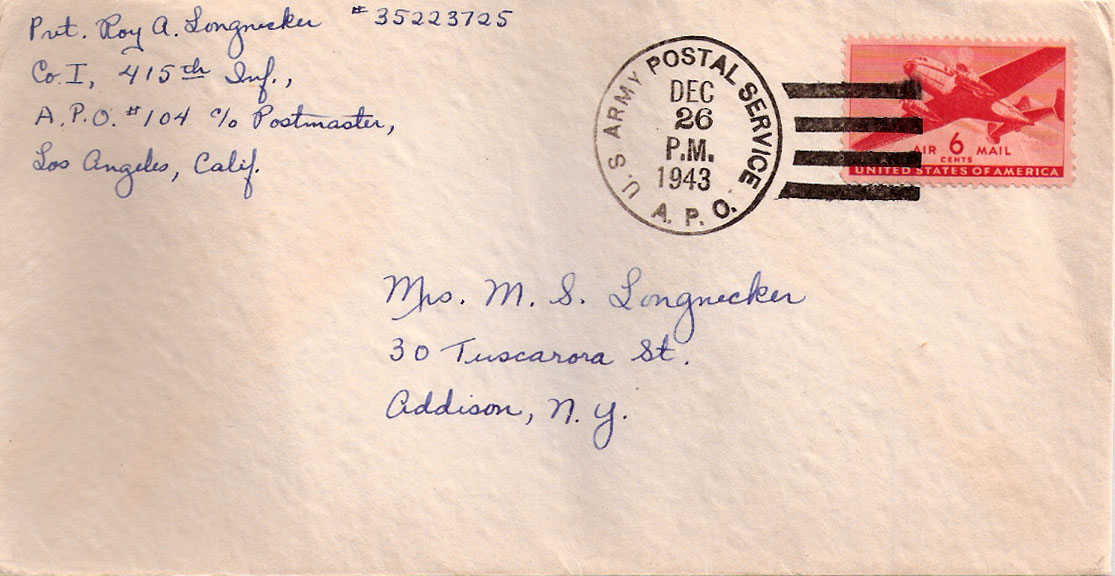 Pvt. Roy A. Longnecker #35223725
Co. I, 415th Inf.,
A.P.O. #104 c/o Postmaster,
Los Angeles, Calif.
U.S. ARMY POSTAL SERVICE
DEC
26
P.M.
1943
A. P. O.
AIR 6 MAIL
CENTS
UNITED STATES OF AMERICA
Mrs. M. S. Longnecker
30 Tuscarora St.
Addison, N.Y.